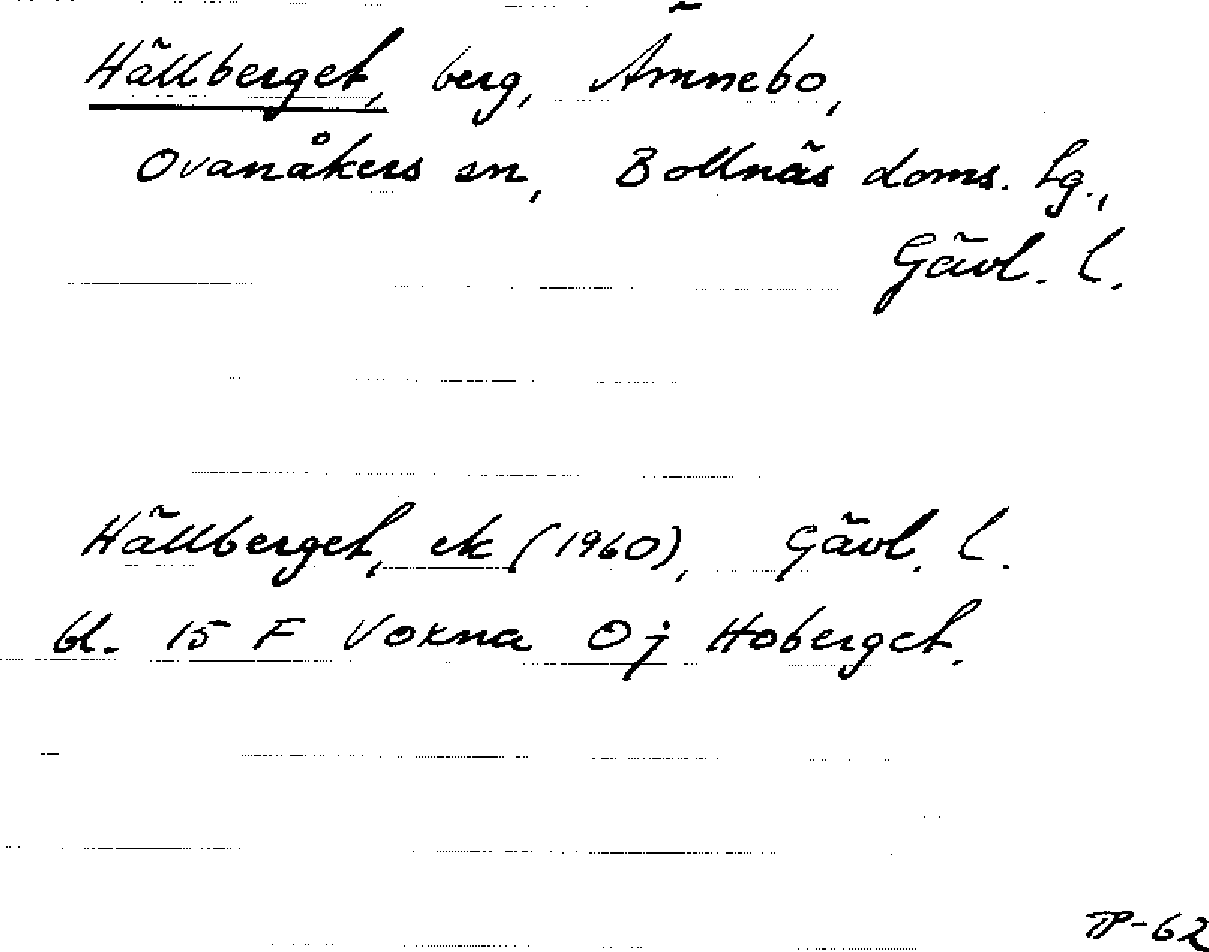 Hällberget, berg, Ämnebo,
Ovanåkers sn, Bollnäs doms. lg.,
Gävl. l.
Hällberget, ek (1960), Gävl. l.
bl. 15 F Voxna Oj Hoberget.
TP-62